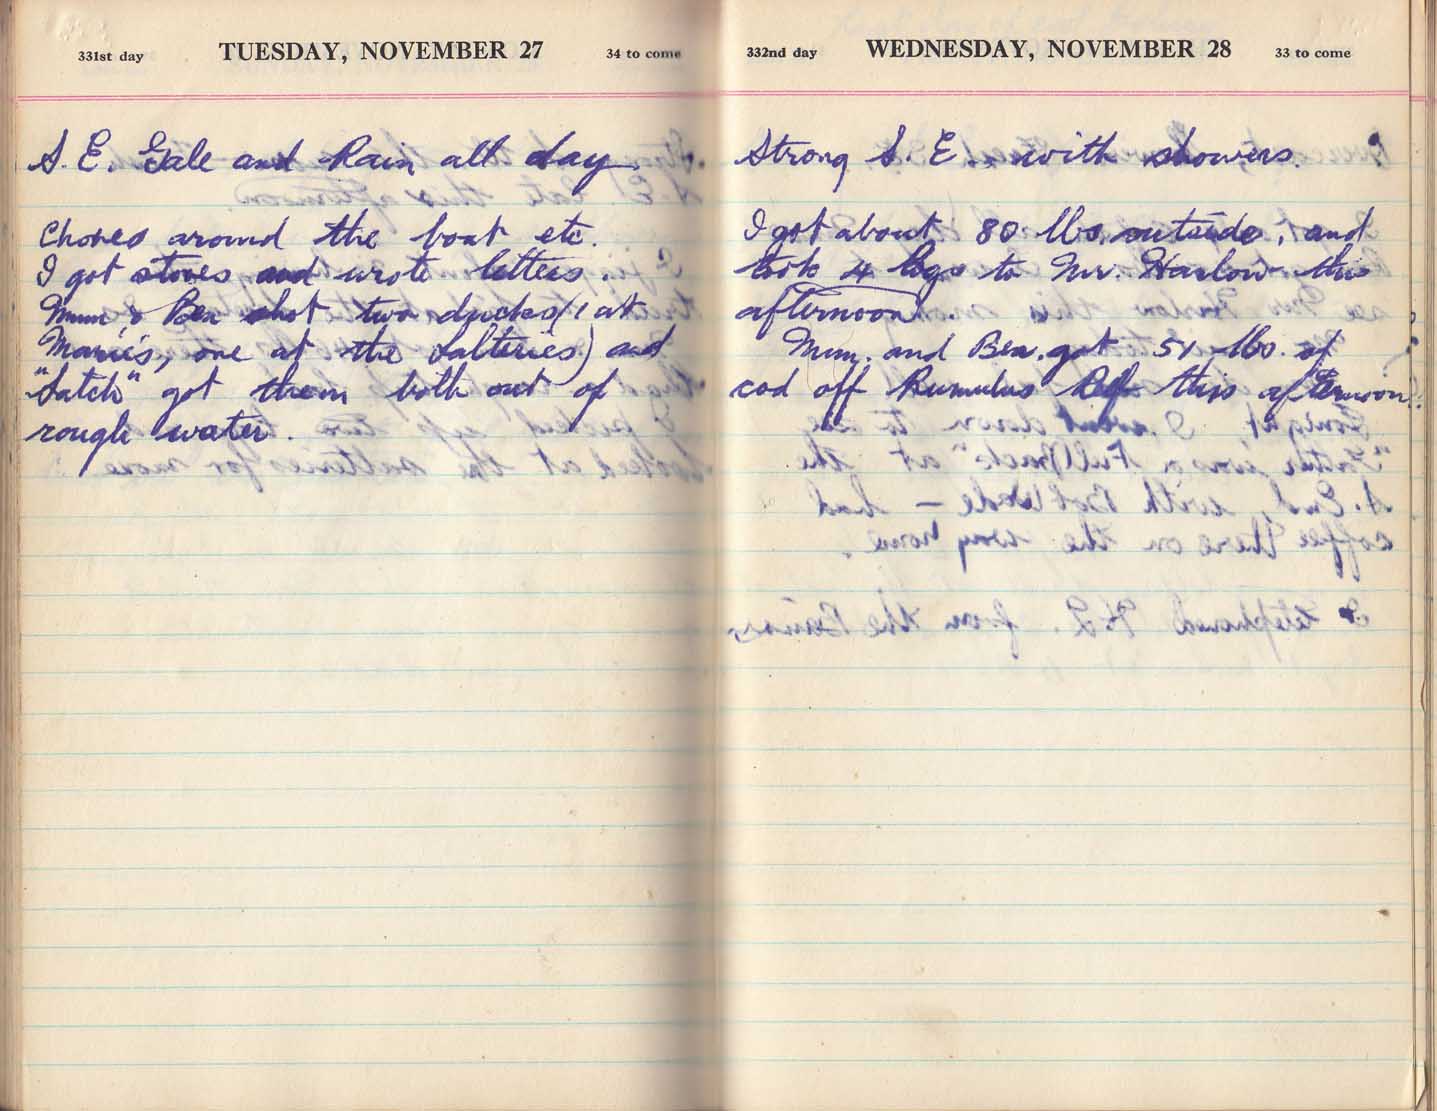 331st day TUESDAY, NOVEMBER 27 34 to come
S. E. Gale and Rain all day.
Chores around the boat etc.
I got stoves and wrote letters.
Mum & Ben shot two ducks (1 at
Marie's, one at the Salteries) and
"Satch" got them both out of
rough water.
332nd day WEDNESDAY, NOVEMBER 28 33 to come
Strong S. E. with showers.
I got about 80 lbs. outside, and
took 4 logs to Mr. Harlow this
afternoon.
Mum. and Ben. got 51 lbs. of
cod off Rumulus this afternoon.